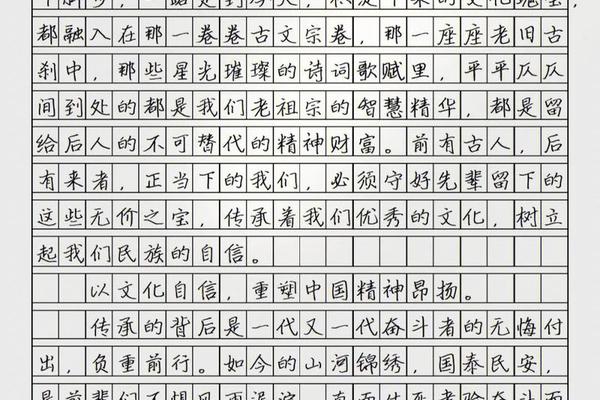 都融入在那一卷卷古文宗卷，那一座座老旧古
刹中，那些星光璀璨的诗词歌赋里，平平仄仄
间到处的都是我们老祖宗的智慧精华，都是留
给后人的不可替代的精神财富。前有古人，后
有来者，正当下的我们，必须守好先辈留下的
这些无价之宝，传承着我们优秀的文化，树立
起我们民族的自信。
以文化自信，重塑中国精神昂扬。
传承的背后是一代又一代奋斗者的无悔付
出，负重前行。如今的山河锦绣，国泰民安，